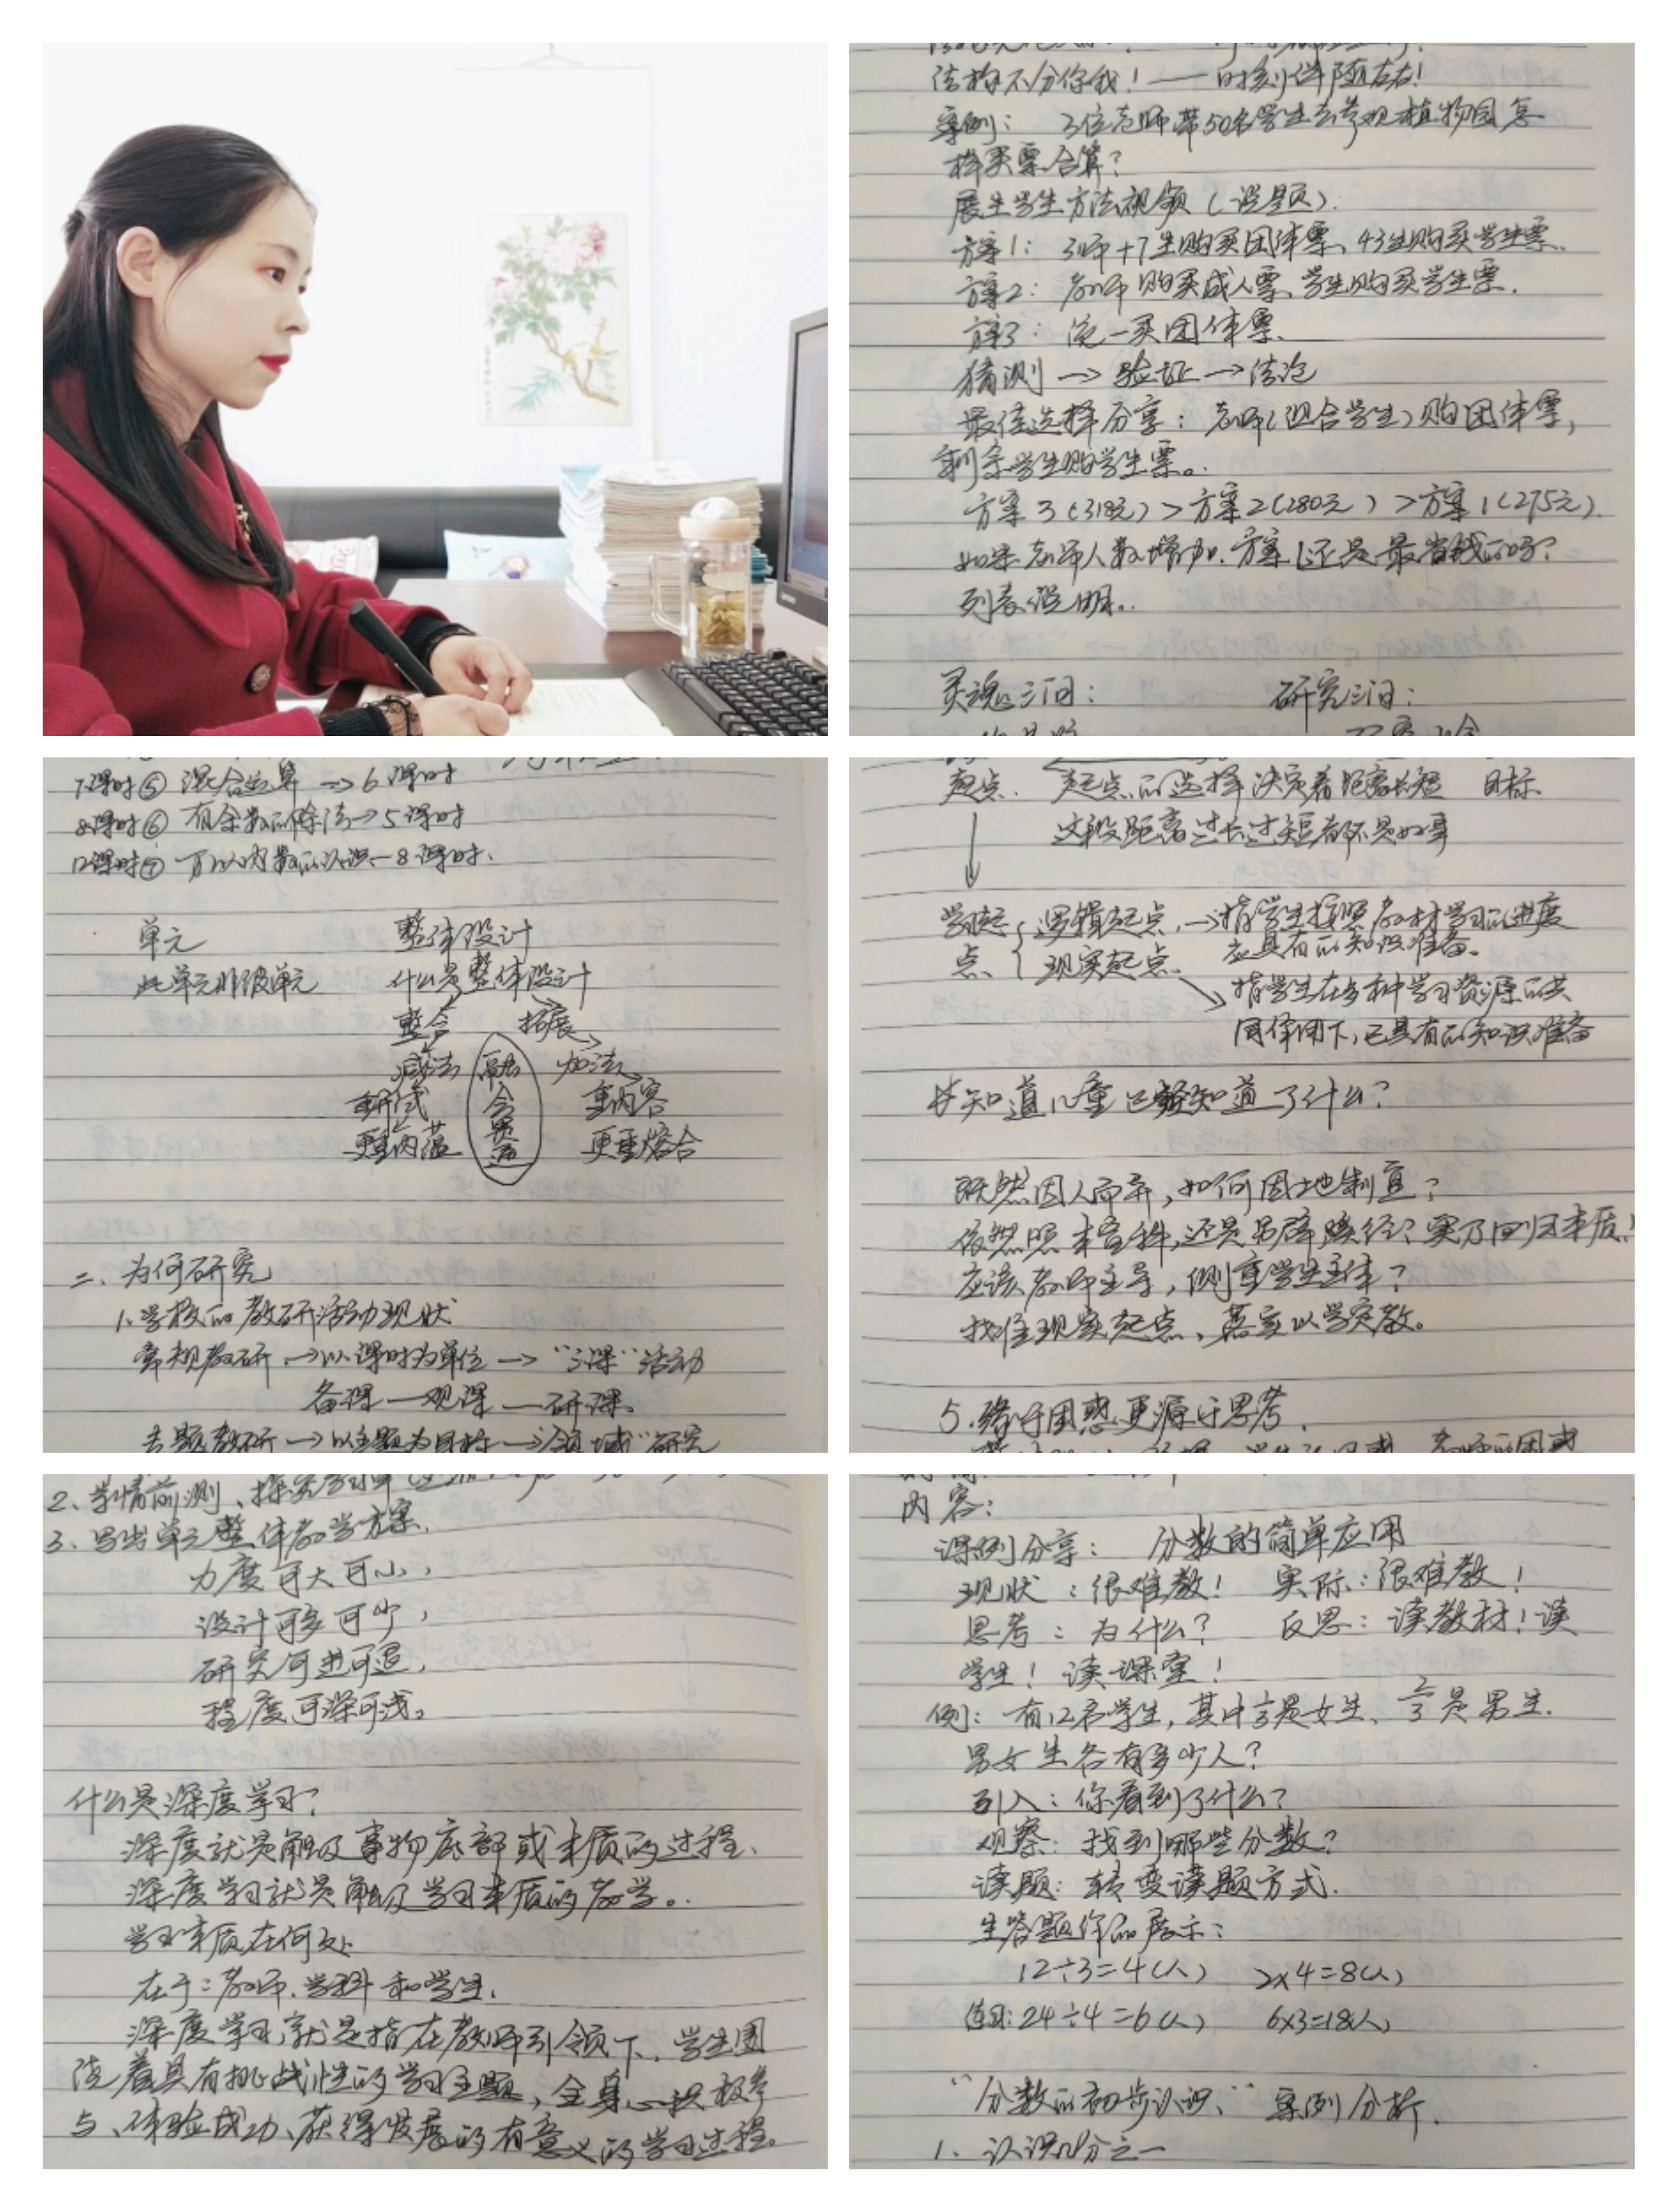 结构不分你我！——时刻伴随左右！
案例： 3位老师带50名学生去参观植物园怎
样买票合算？
展生学生方法视频（说题）.
方案1：3师+7生购买团体票、43生购买学生票.
方案2：教师购买成人票、学生购买学生票.
方案3：统一买团体票.
猜测→验证→结论
最佳选择分享：老师（组合学生）购团体票，
剩余学生购学生票。
方案3（318元）>方案2（280元）>方案1（275元）.
如果老师人数增加.方案1还是最省钱的吗？
列表说明.
灵魂三问： 研究三问：
7课时⑤ 混合运算→6课时
8课时⑥ 有余数的除法→5课时
12课时⑦ 万以内数的认识—8课时.
单元 整体设计
此单元非彼单元 什么是整体设计
整合 拓展
减法 融会贯通 加法
重形式 重内容
更重内蕴 更重熔合
二、为何研究
1.学校的教研活动现状
常规教研→以课时为单位→“三课”活动
备课—观课—研课.
专题教研→以主题为目标→“领域”研究
起点. 起点的选择决定着距离长短 目标.
这段距离过长过短都不是好事
学习起点 逻辑起点→指学生按照教材学习的进度
应具有的知识准备。
现实起点 指学生在多种学习资源的共
同作用下，已具有的知识准备
知道儿童已经知道了什么？
既然因人而异，如何因地制宜？
依然照本宣科，还是另辟蹊径？实乃回归本质！
应该教师主导，侧重学生主体？
找准现实起点，落实以学定教。
5.缘于困惑更源于思考.
2、学情前测、探究学习单
3、写出单元整体教学方案.
力度可大可小，
设计可多可少，
研究可进可退，
程度可深可浅。
什么是深度学习？
深度就是触及事物底部或本质的过程.
深度学习就是触及学习本质的教学。
学习本质在何处
在于：教师.学科和学生.
深度学习，就是指在教师引领下，学生围
绕着具有挑战性的学习主题，全身心积极参
与、体验成功、获得发展的有意义的学习过程。
内容：
课例分享： 分数的简单应用
现状：很难教！ 实际：很难教！
思考：为什么？ 反思：读教材！读
学生！读课堂！
例：有12名学生，其中1/3是女生、2/3是男生.
男女生各有多少人？
引入：你看到了什么？
观察：找到哪些分数？
读题：转变读题方式.
生答题作品展示：
12÷3=4（人） 2×4=8（人）
练习：24÷4=6（人） 6×3=18（人）
“分数的初步认识”案例分析.
1.认识几分之一